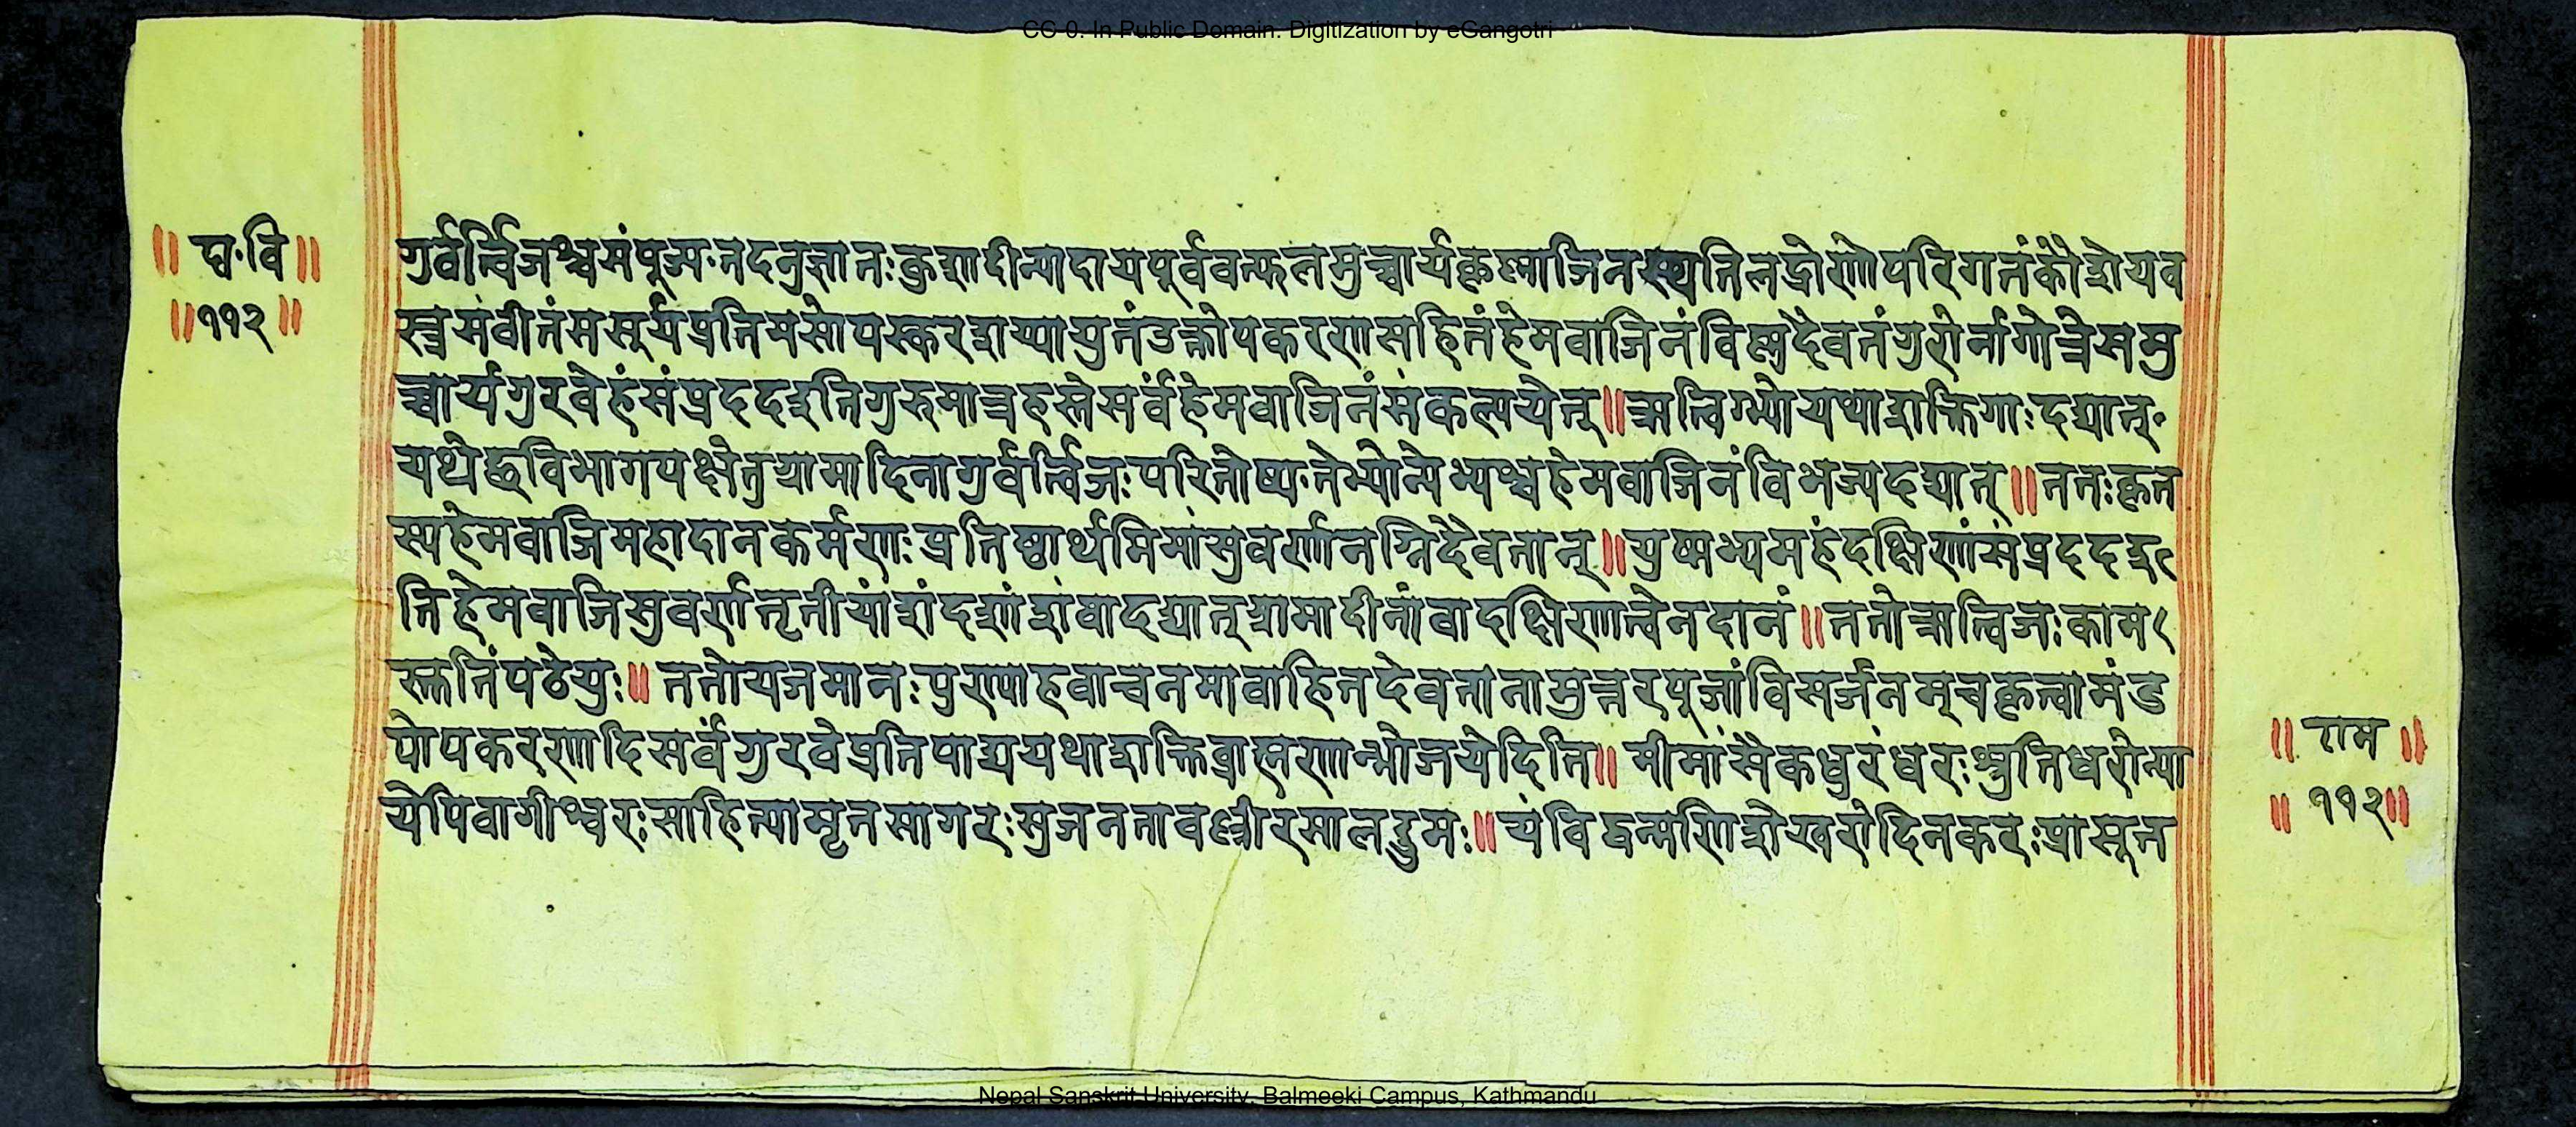 CC-0. In Public Domain. Digitization by eGangotri
॥ प्र·वि॥
॥११२॥
गुर्वर्त्विजश्च संपूज्य·तदनुज्ञातः कुशादीन्यादाय पूर्ववत्फलमुच्चार्य कृष्णाजिनस्थतिलद्रोणोपरिगतं कौशेयव
स्त्रसंवीतं मसूर्यप्रतिमसोपस्करशय्यायुतं उक्तोपकरणसहितं हेमवाजिनं विष्णुदैवतं गुरोर्नामगोत्रे समु
च्चार्य गुरवेहं संप्रददइति गुरुमात्रहस्ते सर्वं हेमवाजिनं संकल्पयेत्॥ऋत्विग्भ्यो यथाशक्ति गाः दद्यात्·
यथेष्टविभागपक्षे तु ग्रामादिना गुर्वर्त्विजः परितोष्य·तेभ्योन्येभ्यश्च हेमवाजिनं विभज्य दद्यात्॥ततः कृत
स्य हेमवाजिमहादानकर्मणः प्रतिष्ठार्थमिमां सुवर्णानग्निदैवतान्॥युष्मभ्यमहं दक्षिणां संप्रददइ
ति हेमवाजिसुवर्णतृतीयांशं दशांशं वा दद्यात् ग्रामादीनां वा दक्षिणात्वेन दानं॥ततो ऋत्विजः काम
स्कतिं पठेयुः॥ ततो यजमानः पुण्याहवाचनमावाहितदेवतानामुत्तरपूजां विसर्जनम् च कृत्वा मंड
पोपकरणादि सर्वं गुरवे प्रतिपाद्य यथाशक्ति ब्राह्मणान्भोजयेदिति॥ मीमांसैकधुरंधरः श्रुतिधरो न्या
येपि वागीश्वरः साहित्यामृतसागरः सुजनतावल्लीरसालद्रुमः॥यं विद्वन्मणिशेखरो दिनकरः प्रासूत
॥ राम ॥
॥ ११२॥
Nepal Sanskrit University, Balmeeki Campus, Kathmandu